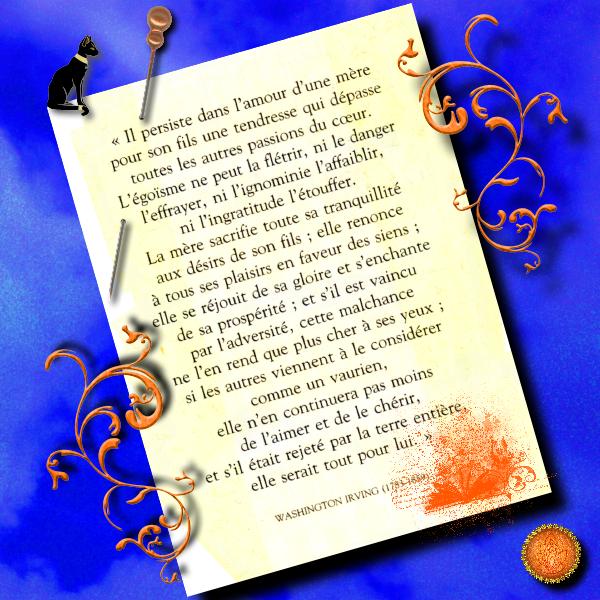 « Il persiste dans l'amour d'une mère
pour son fils une tendresse qui dépasse
toutes les autres passions du cœur.
L'égoïsme ne peut la flétrir, ni le danger
l'effrayer, ni l'ignominie l'affaiblir,
ni l'ingratitude l'étouffer.
La mère sacrifie toute sa tranquillité
aux désirs de son fils ; elle renonce
à tous ses plaisirs en faveur des siens ;
elle se réjouit de sa gloire et s'enchante
de sa prospérité ; et s'il est vaincu
par l'adversité, cette malchance
ne l'en rend que plus cher à ses yeux ;
si les autres viennent à le considérer
comme un vaurien,
elle n'en continuera pas moins
de l'aimer et de le chérir,
et s'il était rejeté par la terre entière,
elle serait tout pour lui. »
WASHINGTON IRVING